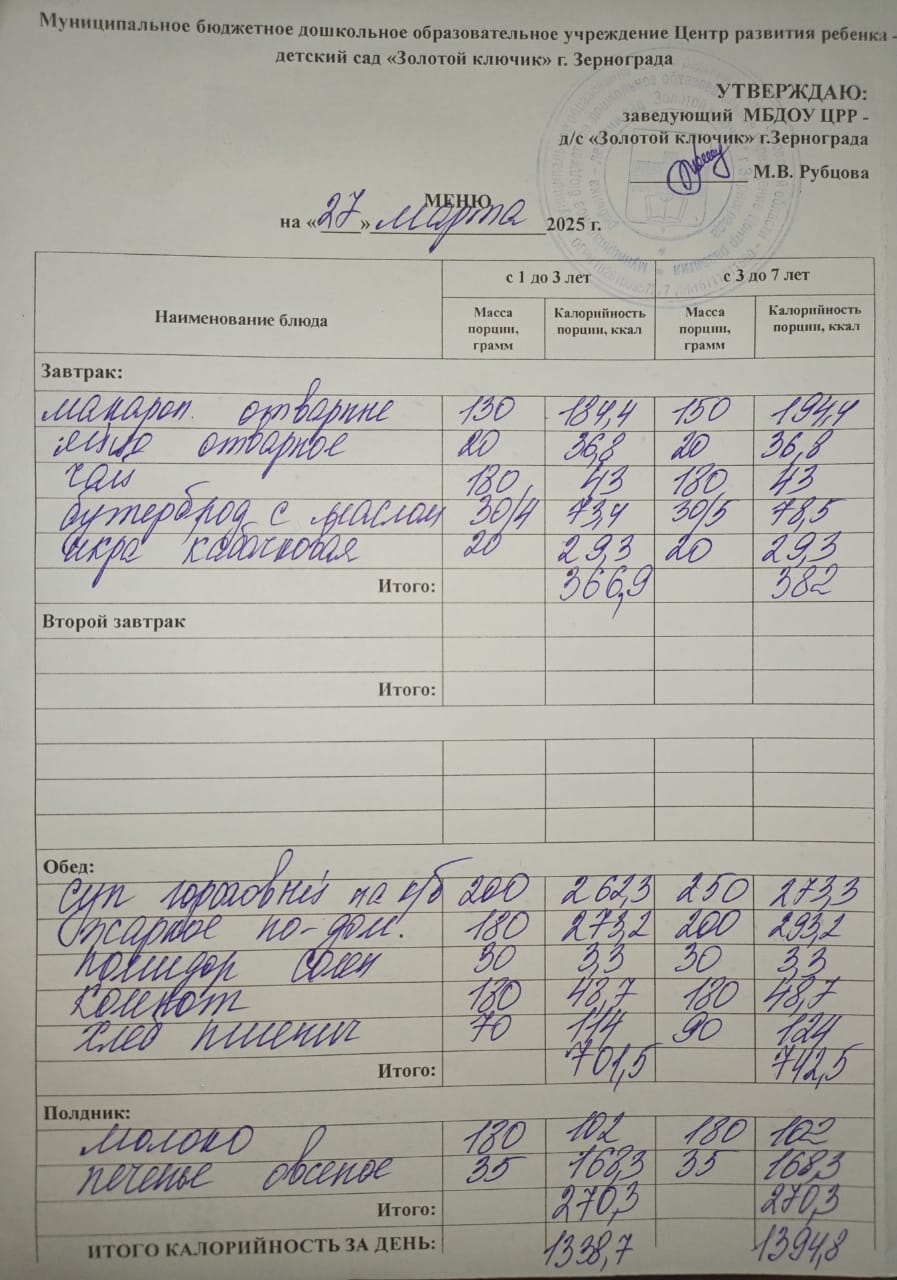 Муниципальное бюджетное дошкольное образовательное учреждение Центр развития ребенка -
детский сад «Золотой ключик» г. Зернограда
УТВЕРЖДАЮ:
заведующий МБДОУ ЦРР -
д/с «Золотой ключик» г.Зернограда
М.В. Рубцова
МЕНЮ
на «27» марта 2025 г.
Наименование блюда с 1 до 3 лет с 3 до 7 лет
Масса порции, грамм Калорийность порции, ккал Масса порции, грамм Калорийность порции, ккал
Завтрак:
макарон. отварные 130 184,4 150 194,4
яйцо отварное 20 36,8 20 36,8
чай 180 43 180 43
бутерброд с маслом 30/4 73,4 30/5 78,5
икра кабачковая 20 29,3 20 29,3
Итого: 366,9 382
Второй завтрак
Итого:
Обед:
суп гороховый на к/б 200 262,3 250 273,3
Жаркое по-дом. 180 273,2 200 293,2
помидор солен 30 3,3 30 3,3
компот 180 48,7 180 48,7
хлеб пшенич 70 114 90 124
Итого: 701,5 742,5
Полдник:
молоко 180 102 180 102
печенье овсяное 35 168,3 35 168,3
Итого: 270,3 270,3
ИТОГО КАЛОРИЙНОСТЬ ЗА ДЕНЬ: 1338,7 1394,8